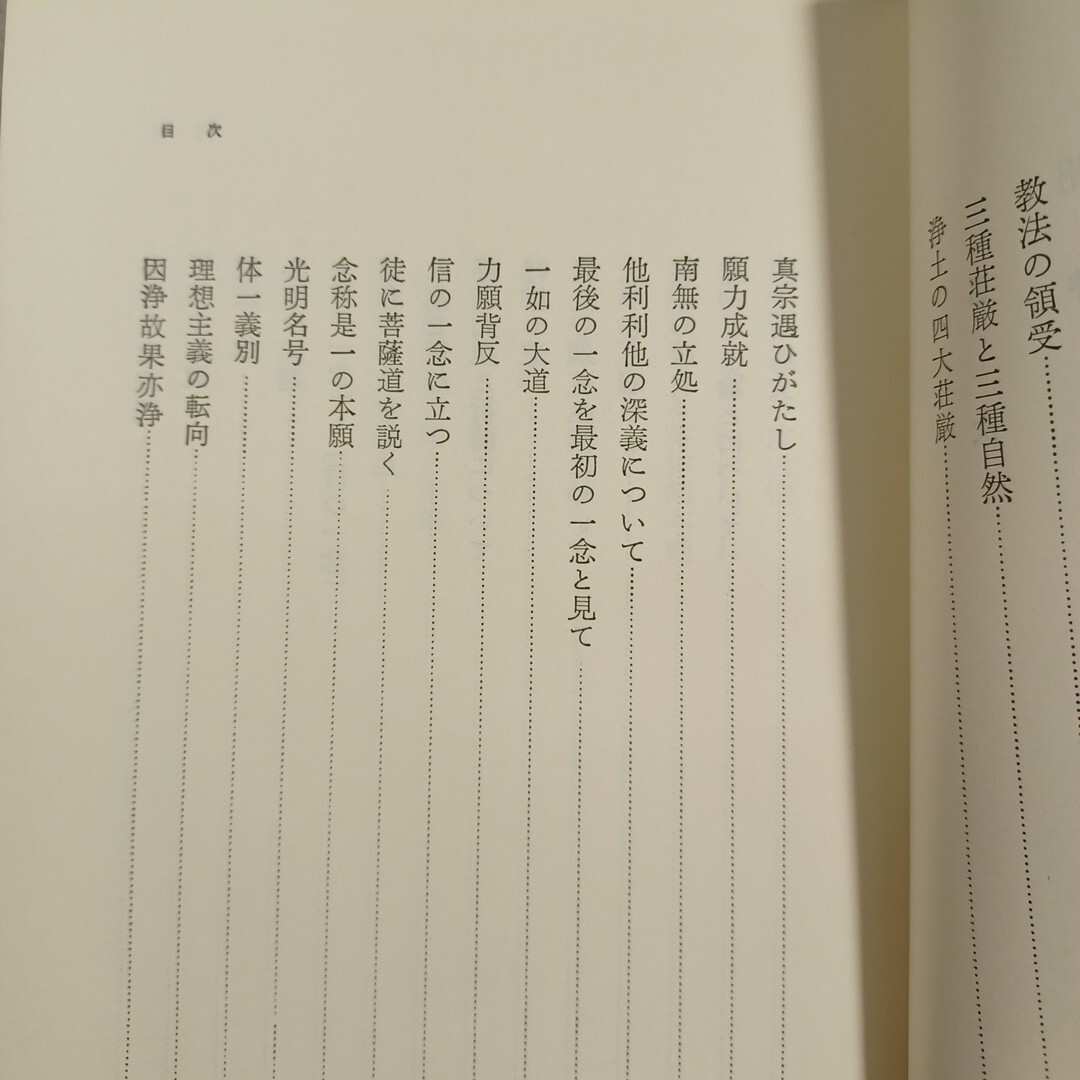 教法の領受
三種荘厳と三種自然
浄土の四大荘厳
目次
真宗遇ひがたし
願力成就
南無の立処
他利利他の深義について
最後の一念を最初の一念と見て
一如の大道
力願背反
信の一念に立つ
徒に菩薩道を説く
念称是一の本願
光明名号
体一義別
理想主義の転向
因浄故果亦浄